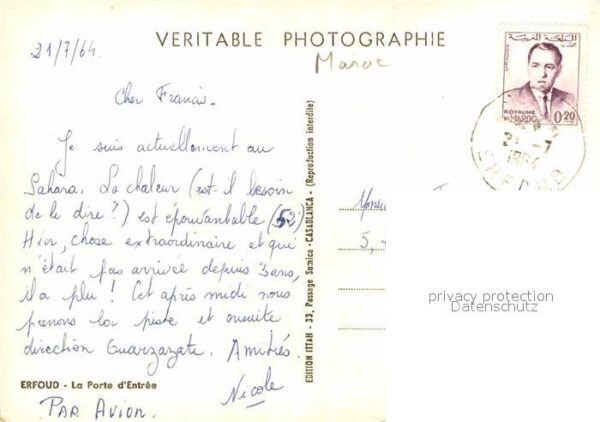 21/7/64.
VERITABLE PHOTOGRAPHIE
Maroc
Cher Francis.
Je suis actuellement au
Sahara. La chaleur (est il besoin
de le dire?) est épouvantable (52°
Hier, chose extraordinaire et qui
n'était pas arrivée depuis 3 ans,
il a plu! Cet après midi nous
prenons la piste et ensuite
direction Ouarzazate. Amitiés.
Nicole
ERFOUD - La Porte d'Entrée
PAR AVION.
EDITION ITTAH - 33, Passage Sumica - CASABLANCA - (Reproduction interdite)
ROYAUME
DU MAROC
0.20
1964
ERFOUD
5,
privacy protection
Datenschutz